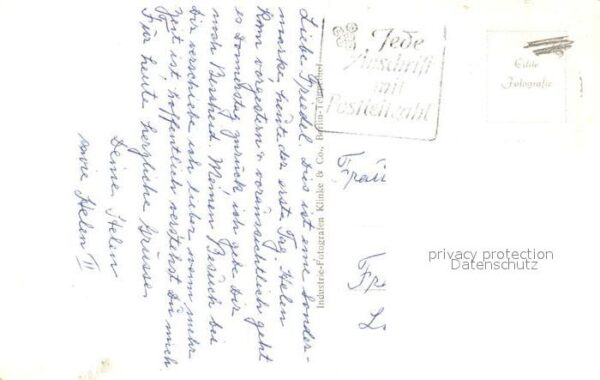 Liebe Friedel. Dies ist eine Sonder-
marke, heute der erste Tag. Helen
kam vorgestern & voraussichtlich geht
es Sonntag zurück, ich gebe Dir
noch Bescheid. Meinen Besuch bei
Dir verschiebe ich lieber wenn mehr
Zeit ist, hoffentlich verstehst Du mich.
Für heute herzliche Grüsse
Deine Helen
sowie Helen II
Industrie-Fotografen Klinke & Co., Berlin-Tempelhof
Jede
Anschrift
mit
Postleitzahl
Echte
Fotografie
Frau
privacy protection
Datenschutz